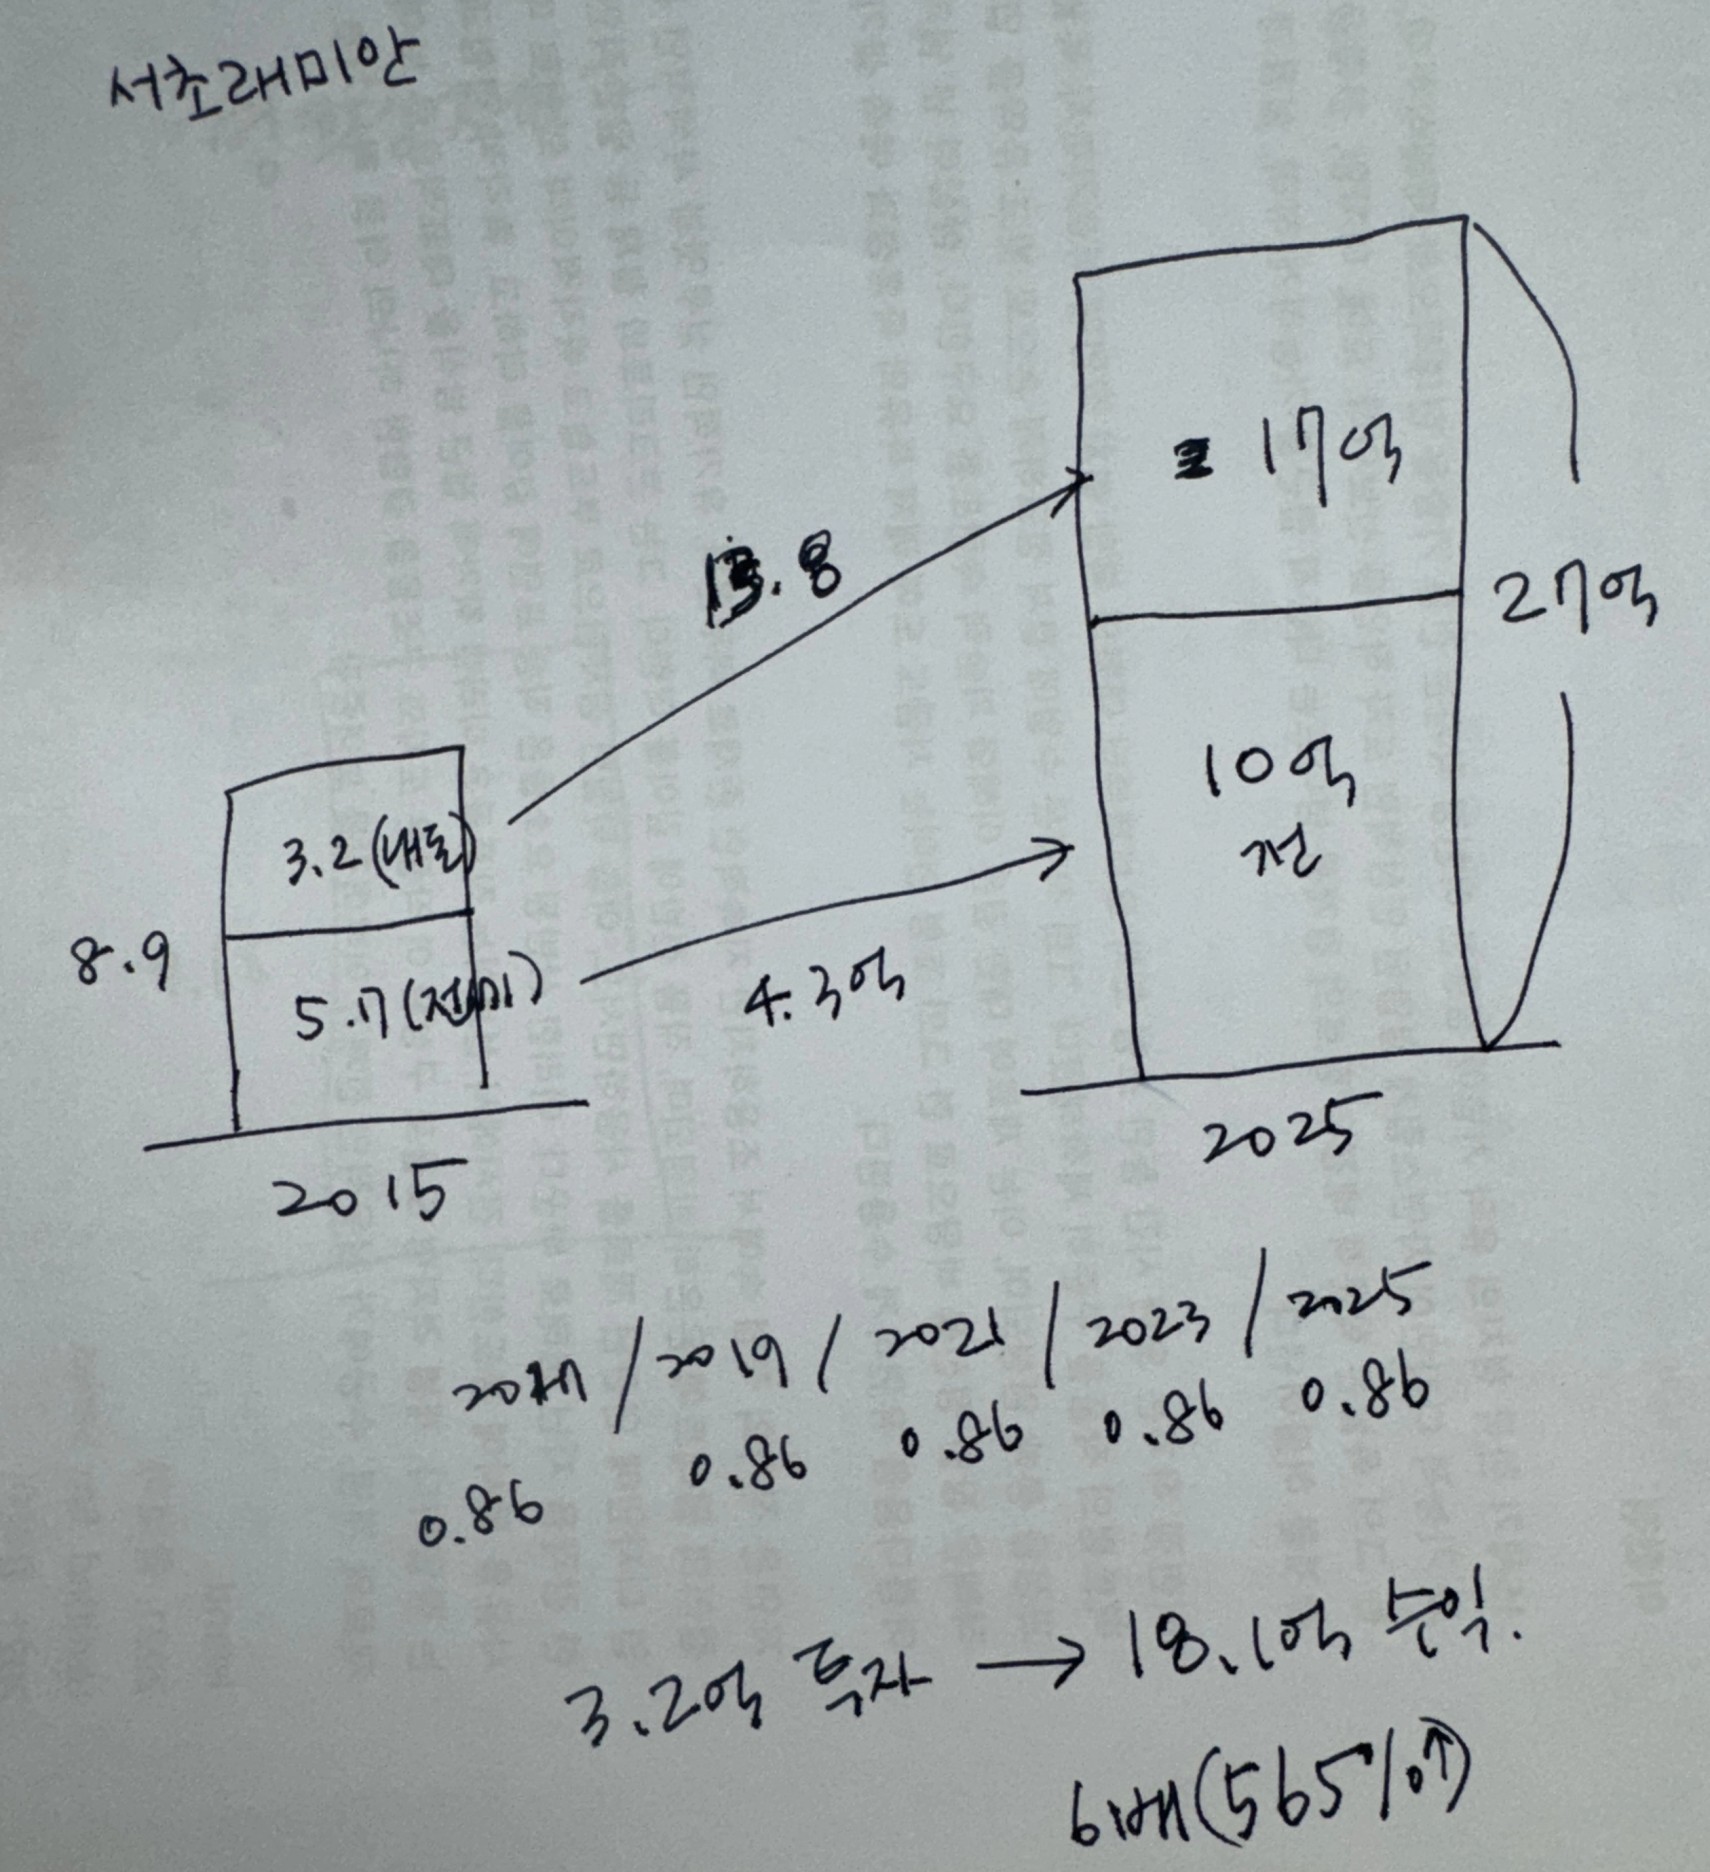 서초래미안
17억
13.8
27억
10억
전
3.2(내돈)
8.9
5.7(전세)
4.3억
2015
2025
2017 / 2019 / 2021 / 2023 / 2025
0.86 0.86 0.86 0.86 0.86
3.2억 투자 → 18.1억 수익.
6배(565%↑)